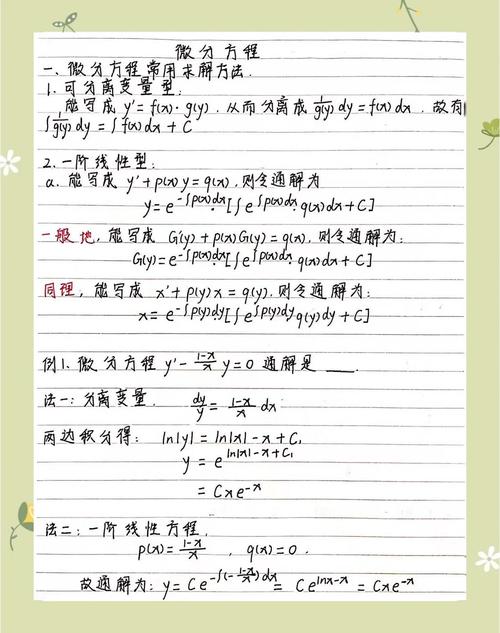 微分方程
一、微分方程常用求解方法.
1. 可分离变量型:
能写成 y' = f(x)·g(y). 从而分离成 1/g(y) dy = f(x) dx, 故有
∫ 1/g(y) dy = ∫ f(x) dx + C
2. 一阶线性型:
a. 能写成 y' + p(x) y = q(x), 则令通解为
y = e^{-∫p(x)dx} [∫ e^{∫p(x)dx}·q(x)dx + C]
一般地, 能写成 G'(y) + p(x) G(y) = q(x), 则令通解为:
G(y) = e^{-∫p(x)dx} [∫ e^{∫p(x)dx}·q(x)dx + C]
同理, 能写成 x' + p(y) x = q(y), 则令通解为:
x = e^{-∫p(y)dy} [∫ e^{∫p(y)dy} q(y)dy + C]
例1. 微分方程 y' - (1-x)/x y = 0 通解是 ___.
法一: 分离变量. dy/y = (1-x)/x dx
两边积分得: ln|y| = ln|x| - x + C₁
y = e^{ln|x| - x + C₁}
= Cxe^{-x}
法二: 一阶线性方程.
p(x) = (1-x)/x , q(x) = 0.
故通解为: y = C e^{-∫(-(1-x)/x)dx} = C e^{lnx-x} = Cxe^{-x}